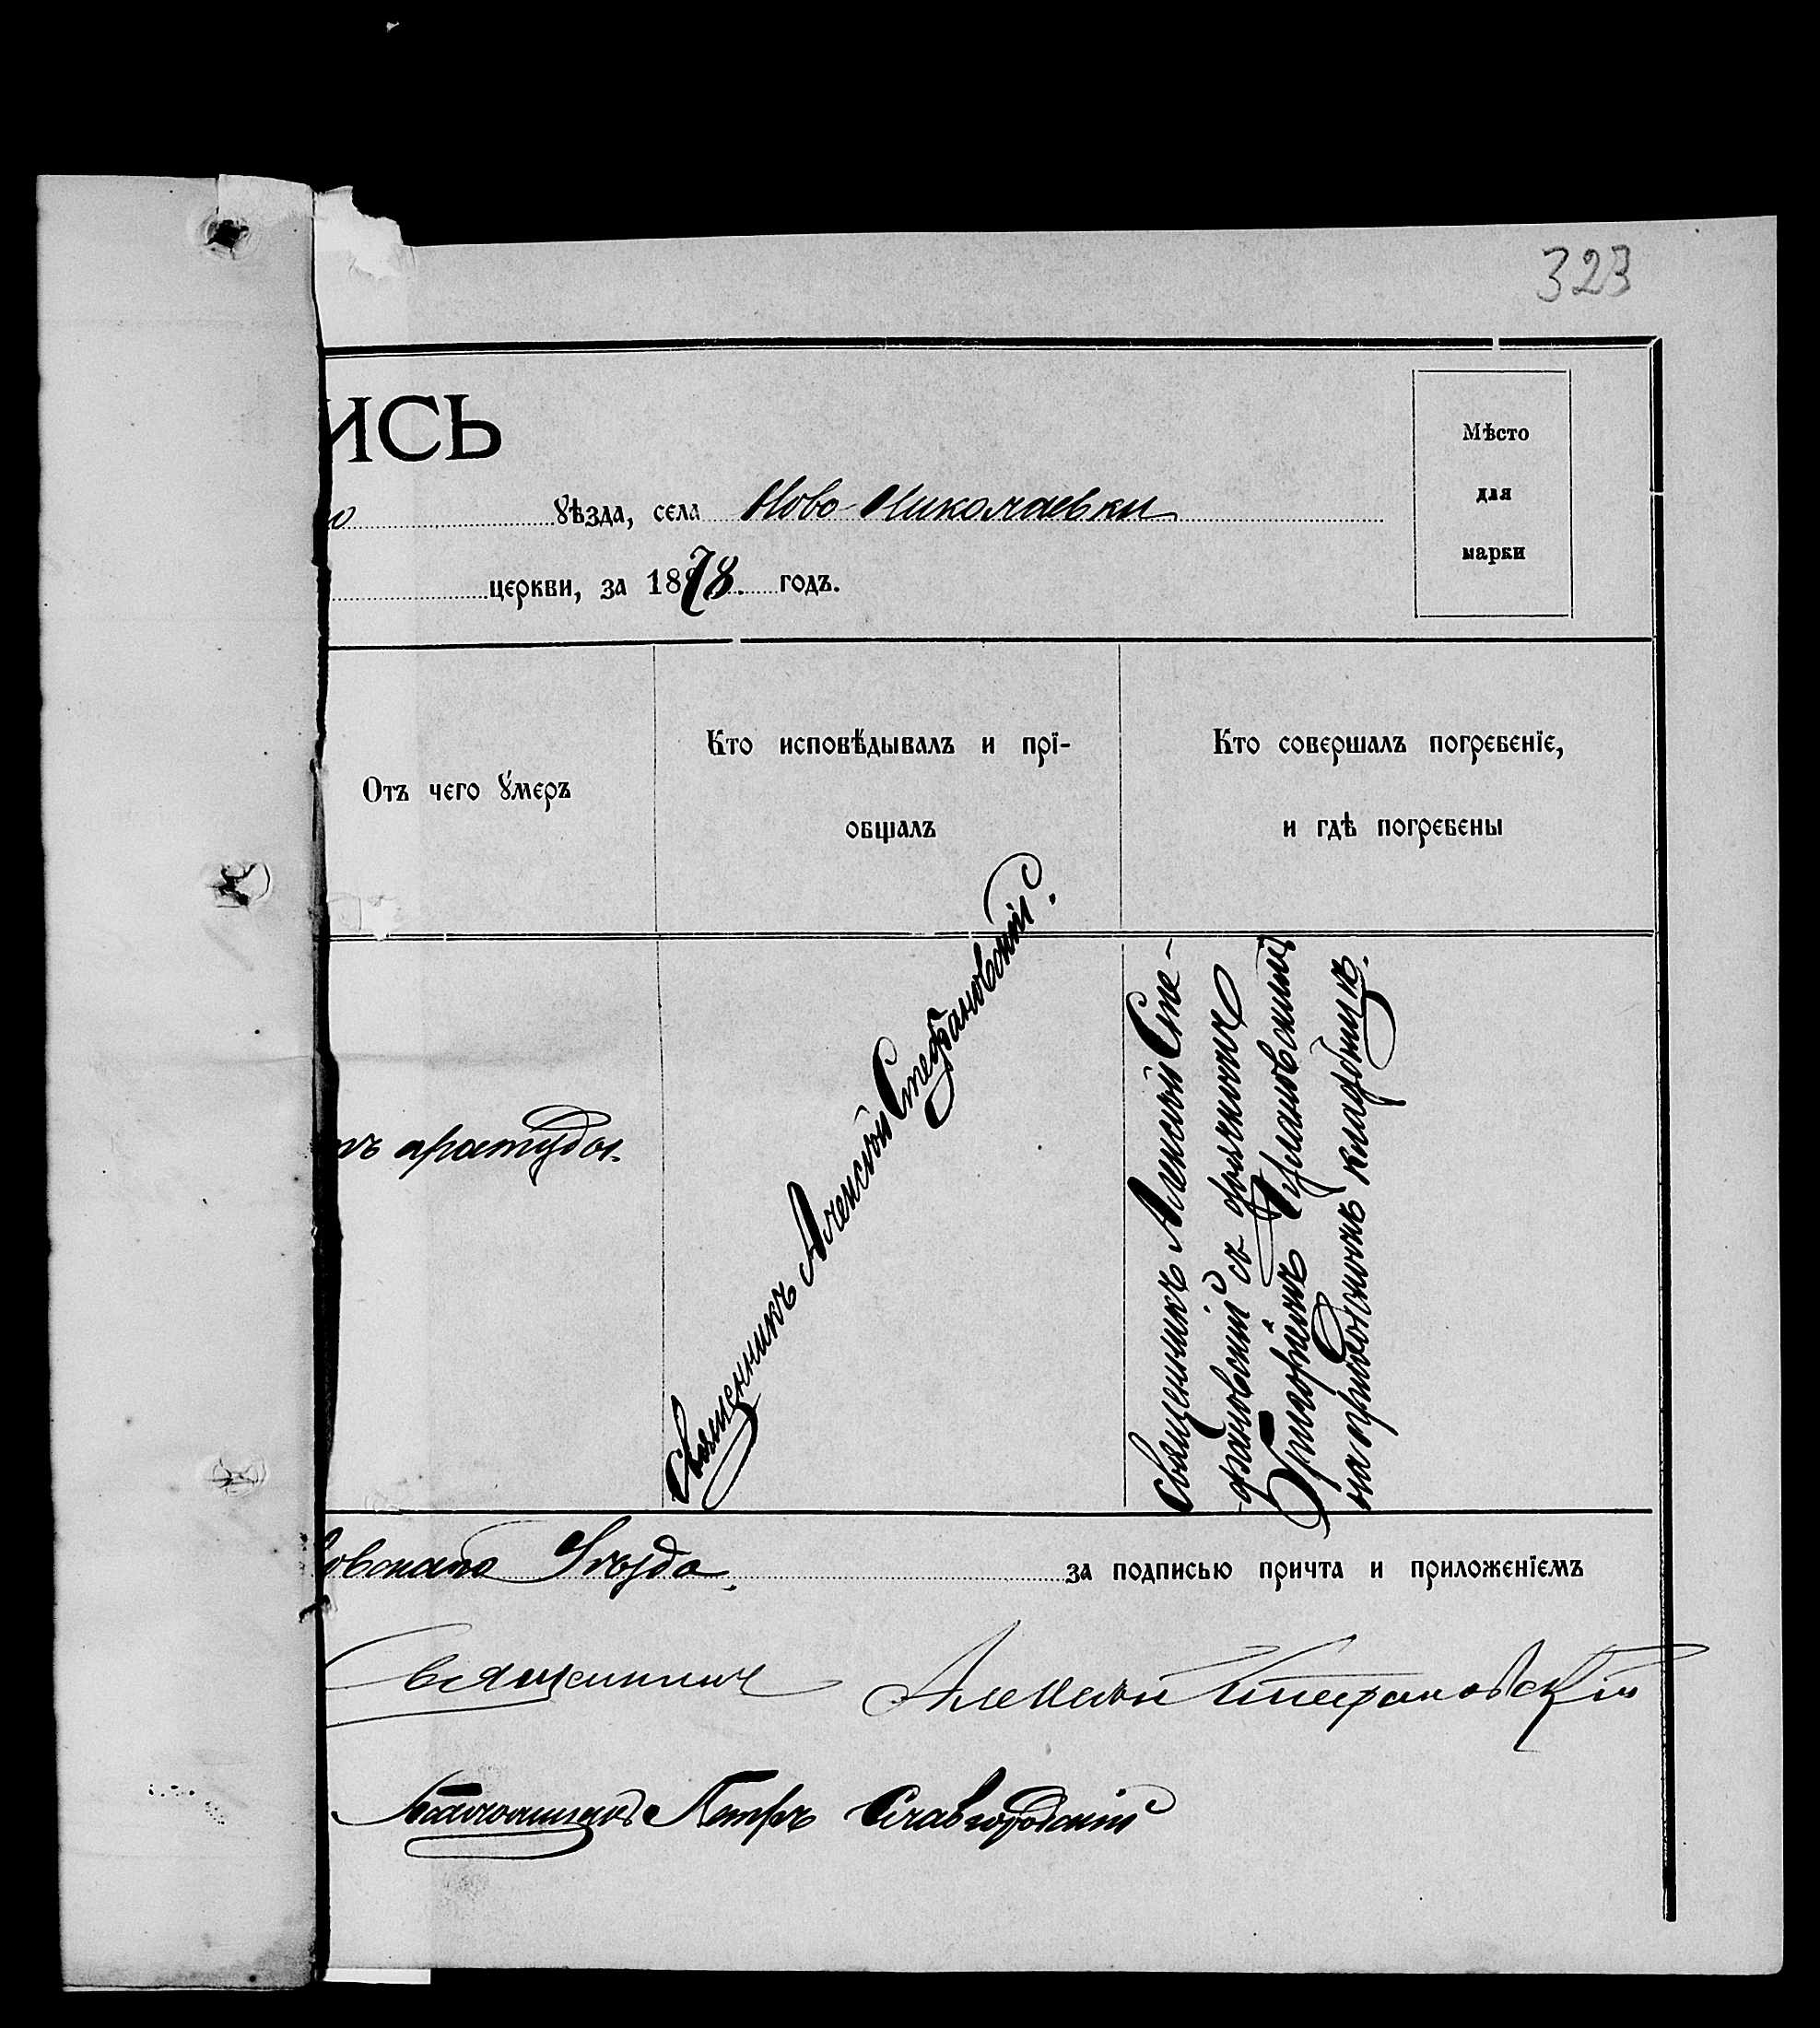 323
ИСЬ
Мѣсто
для
марки
о уѣзда, села Ново-Николаевки
церкви, за 1878. годъ.
Отъ чего умеръ
Кто исповѣдывалъ и прі-
общалъ
Кто совершалъ погребеніе,
и гдѣ погребены
тъ простуды.
Священникъ Алексѣй Стефановскій.
Священникъ Алексѣй Сте-
фановскій съ дьякономъ
Григоріемъ
на приходскомъ кладбищѣ.
овскаго Уѣзда. за подписью причта и приложеніемъ
Священникъ Алексѣй Стефановскій
Псаломщикъ Петръ Славгородскій